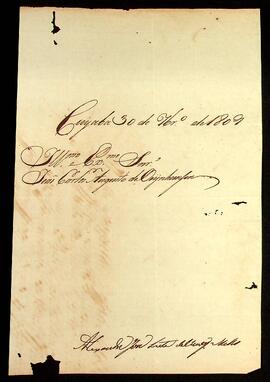 Cuyaba 30 de 9br.º de 1809
Illmo e Exmo Snr.
João Carlos Augusto de Oeynhausen
Alexandre José Leite Mello